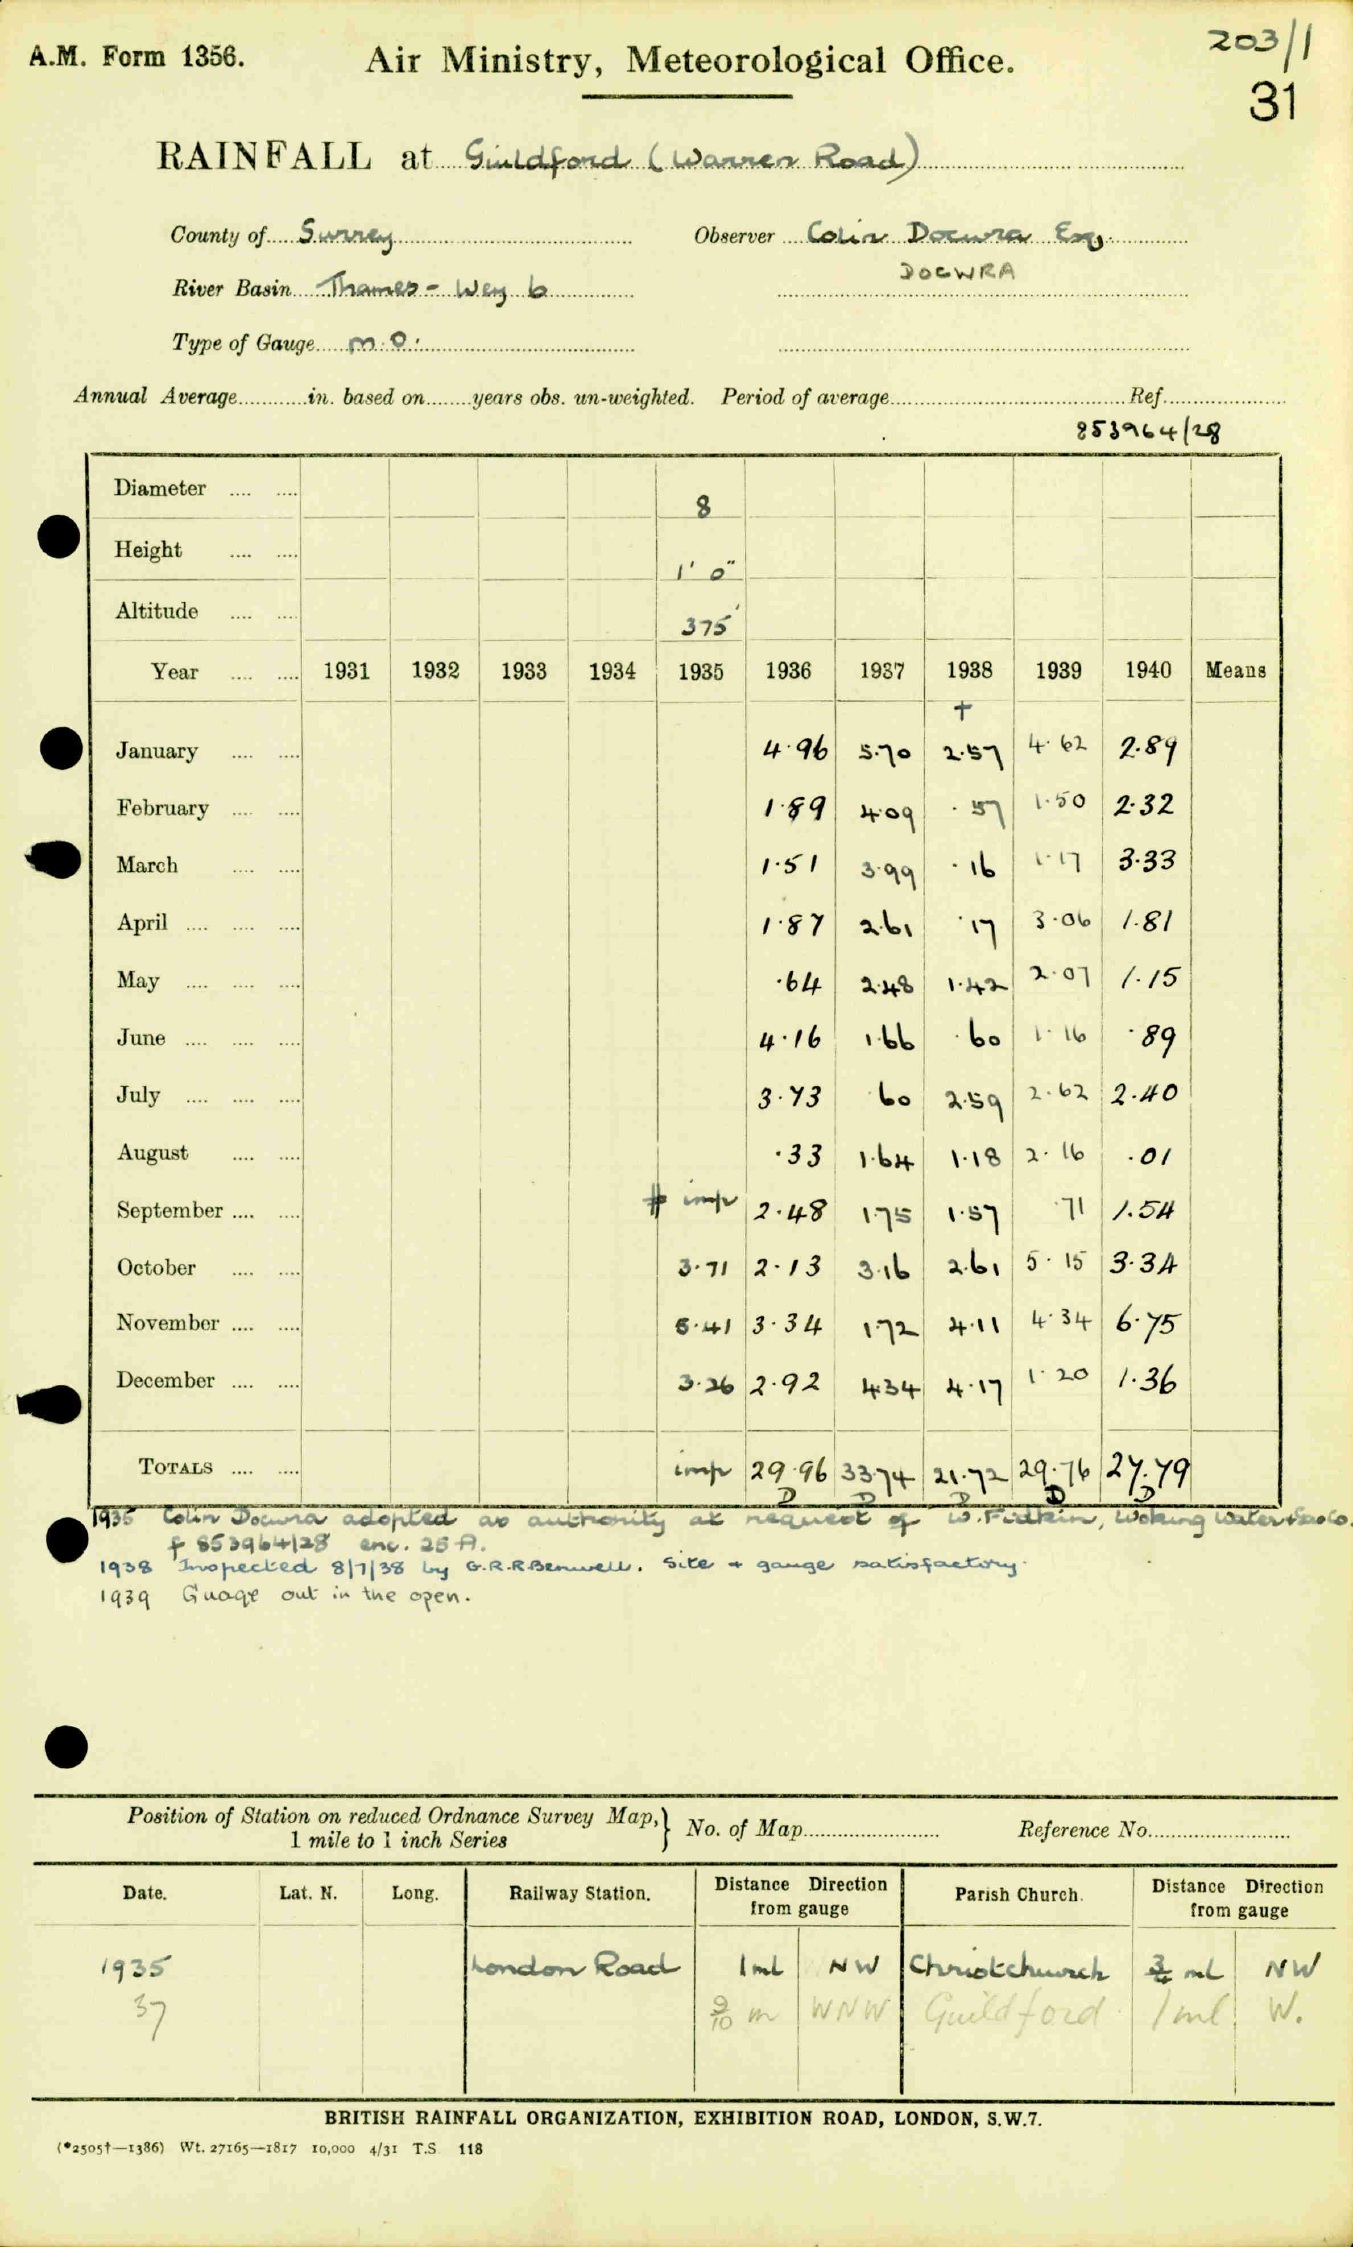 203/1
A.M. Form 1356. Air Ministry, Meteorological Office.
31
RAINFALL at Guildford (Warren Road)
County of Surrey Observer Colin Docwra Esq.
DOCWRA
River Basin Thames - Wey b
Type of Gauge M.O.
Annual Average in. based on years obs. un-weighted. Period of average Ref.
853964/28
Diameter 8
Height 1' 0"
Altitude 375'
Year 1931 1932 1933 1934 1935 1936 1937 1938 1939 1940 Means
+
January 4.96 5.70 2.57 4.62 2.89
February 1.89 4.09 .57 1.50 2.32
March 1.51 3.99 .16 1.17 3.33
April 1.87 2.61 .17 3.06 1.81
May .64 2.48 1.42 2.07 1.15
June 4.16 1.66 .60 1.16 .89
July 3.73 .60 2.59 2.62 2.40
August .33 1.64 1.18 2.16 .01
September # imp 2.48 1.75 1.57 .71 1.54
October 3.71 2.13 3.16 2.61 5.15 3.34
November 5.41 3.34 1.72 4.11 4.34 6.75
December 3.26 2.92 4.34 4.17 1.20 1.36
TOTALS imp 29.96 33.74 21.72 29.76 27.79
D D D D D
1935 Colin Docwra adopted as authority at request of W. Woking Water & Gas Co.
f 853964/28 enc. 25A.
1938 Inspected 8/7/38 by G.R.R. Benwell. Site + gauge satisfactory.
1939 Guage out in the open.
Position of Station on reduced Ordnance Survey Map, } No. of Map Reference No.
1 mile to 1 inch Series
Date. Lat. N. Long. Railway Station. Distance Direction from gauge Parish Church. Distance Direction from gauge
1935 London Road 1ml NW Christchurch 3/4 ml NW
37 9/10 m WNW Guildford 1ml W.
BRITISH RAINFALL ORGANIZATION, EXHIBITION ROAD, LONDON, S.W.7.
(*2505†—1386) Wt. 27165—1817 10,000 4/31 T.S. 118